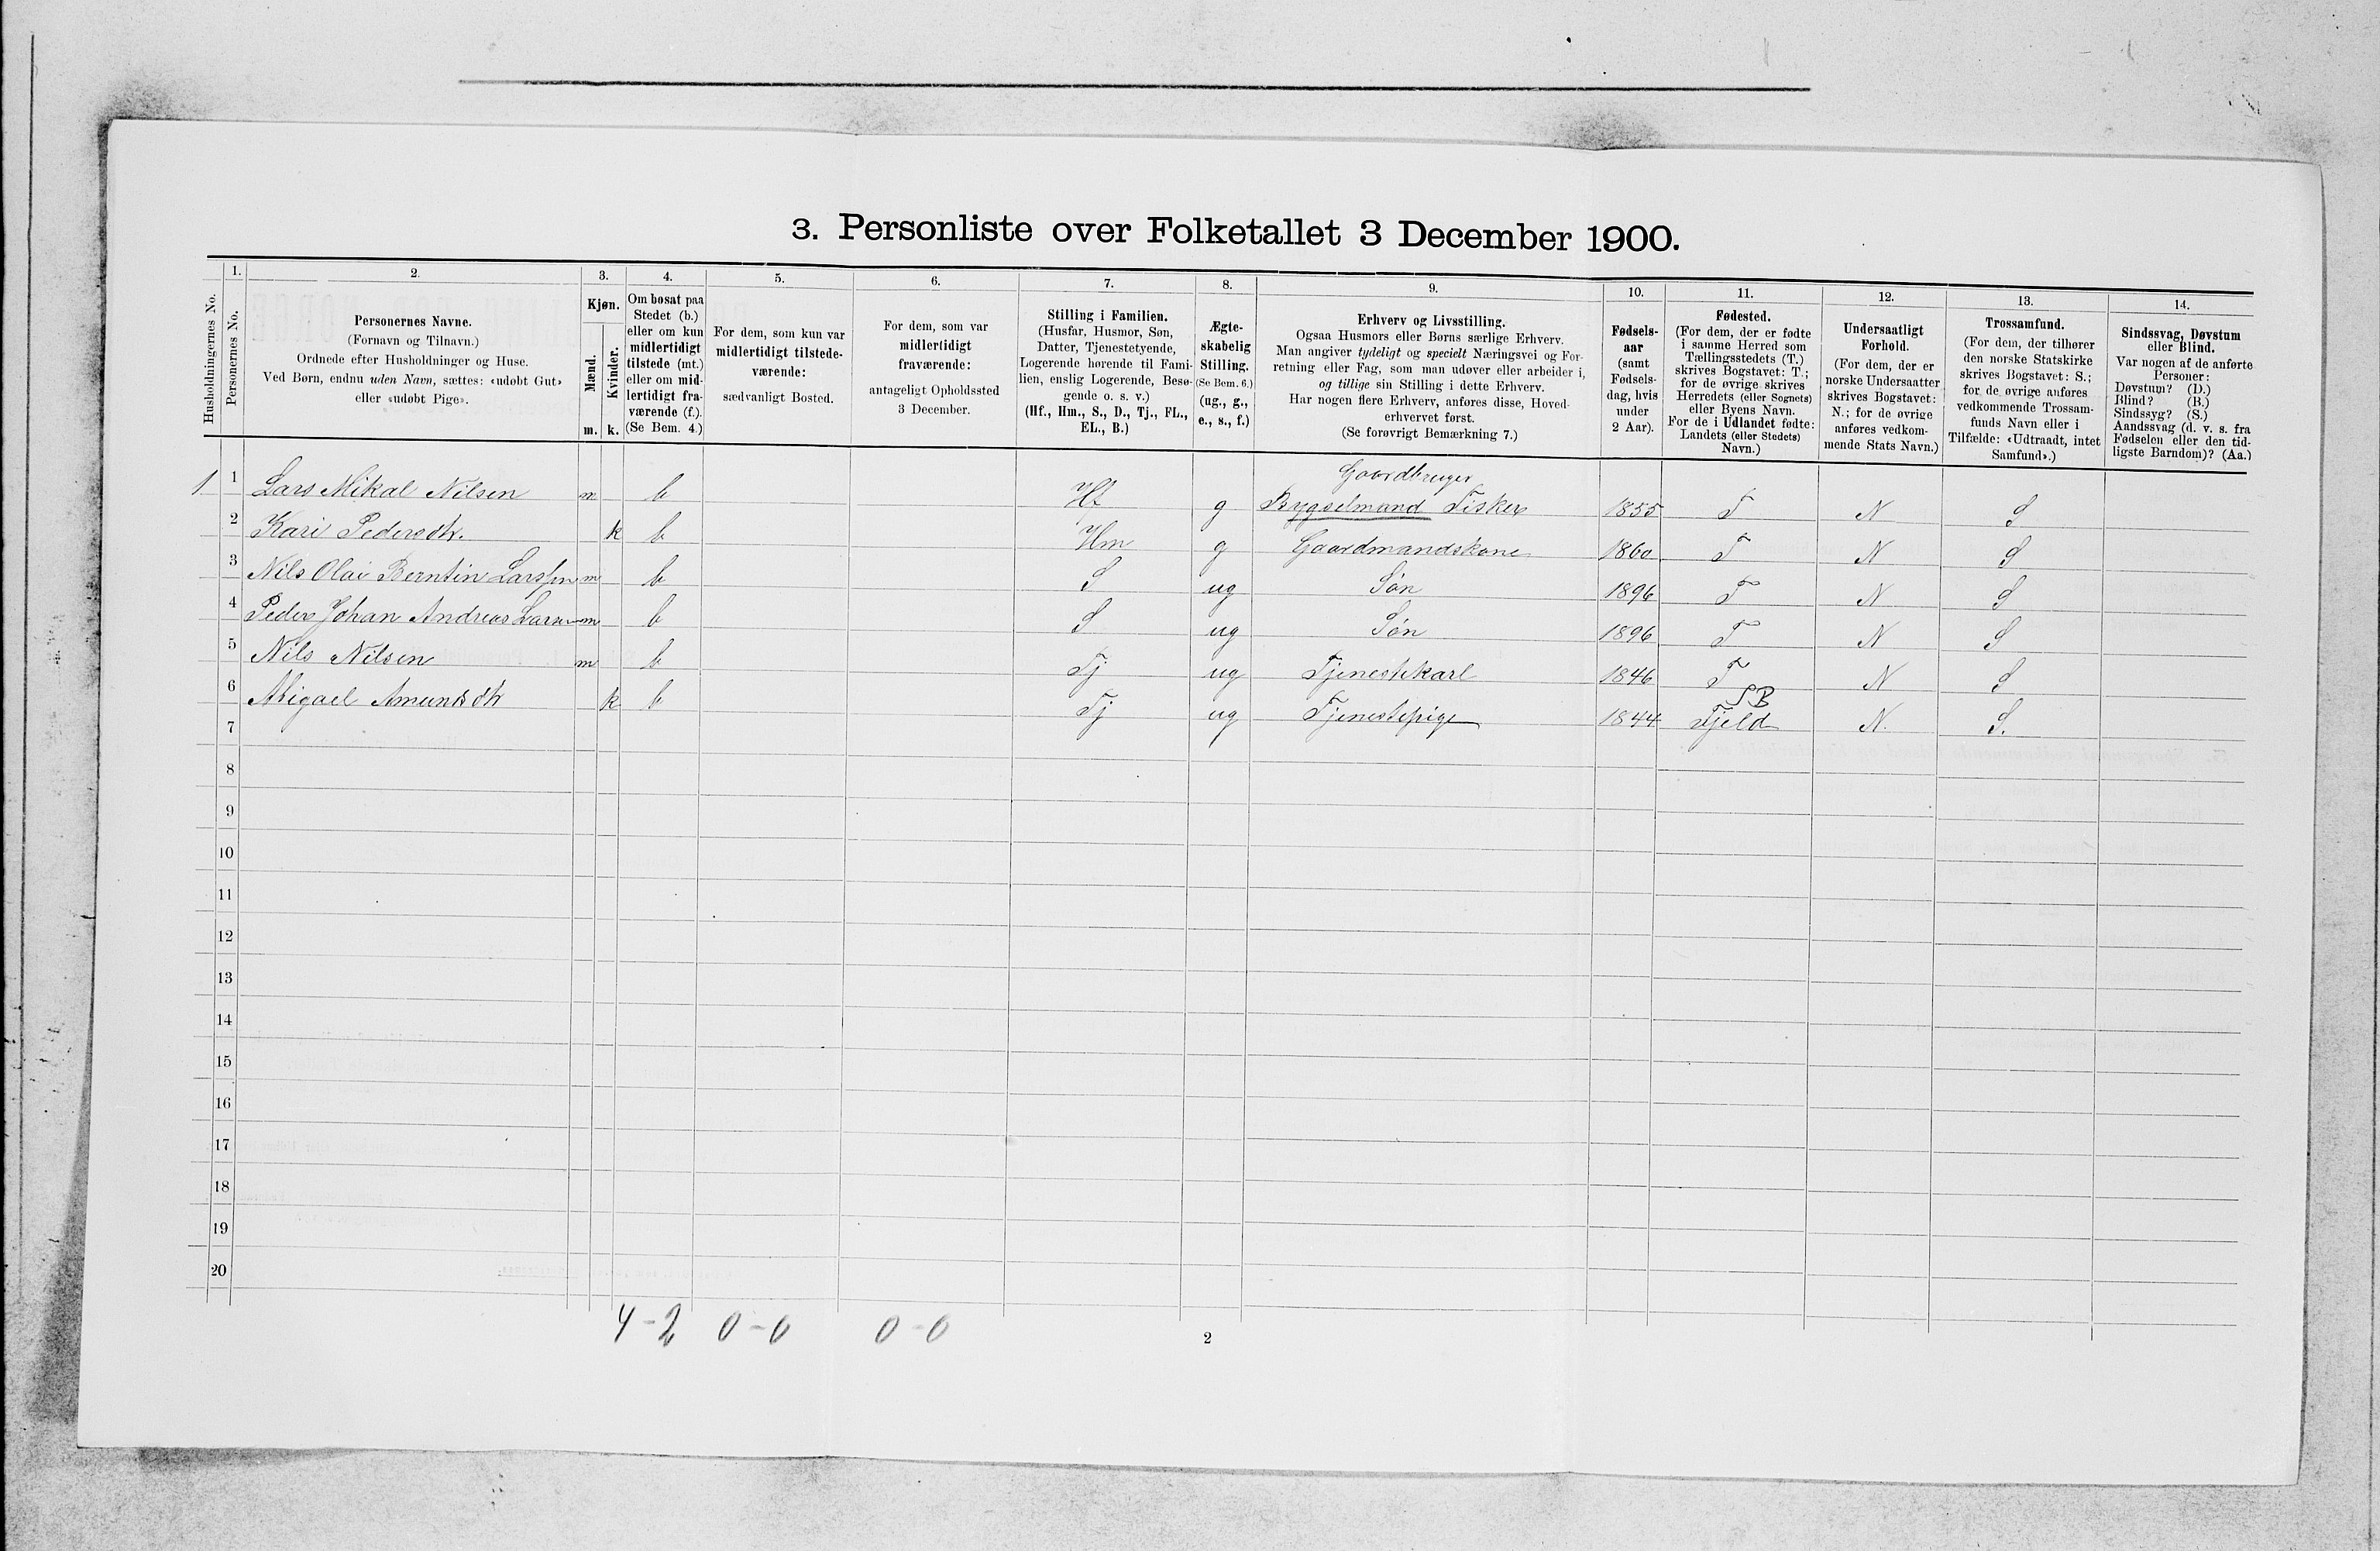 3. Personliste over Folketallet 3 December 1900.
Husholdningernes No.
1.
Personernes No.
2.
Personernes Navne.
(Fornavn og Tilnavn.)
Ordnede efter Husholdninger og Huse.
Ved Børn, endnu uden Navn, sættes: «udøbt Gut»
eller «udøbt Pige».
3.
Kjøn.
Mænd.
Kvinder.
m. k.
4.
Om bosat paa
Stedet (b.)
eller om kun
midlertidigt
tilstede (mt.)
eller om mid-
lertidigt fra-
værende (f.).
(Se Bem. 4.)
5.
For dem, som kun var
midlertidigt tilstede-
værende:
sædvanligt Bosted.
6.
For dem, som var
midlertidigt
fraværende:
antageligt Opholdssted
3 December.
7.
Stilling i Familien.
(Husfar, Husmor, Søn,
Datter, Tjenestetyende,
Logerende hørende til Fami-
lien, enslig Logerende, Besø-
gende o. s. v.)
(Hf., Hm., S., D., Tj., FL.,
EL., B.)
8.
Ægte-
skabelig
Stilling.
(Se Bem. 6.)
(ug., g.,
e., s., f.)
9.
Erhverv og Livsstilling.
Ogsaa Husmors eller Børns særlige Erhverv.
Man angiver tydeligt og specielt Næringsvei og For-
retning eller Fag, som man udøver eller arbeider i,
og tillige sin Stilling i dette Erhverv.
Har nogen flere Erhverv, anføres disse, Hoved-
erhvervet først.
(Se forøvrigt Bemærkning 7.)
10.
Fødsels-
aar
(samt
Fødsels-
dag, hvis
under
2 Aar).
11.
Fødested.
(For dem, der er fødte
i samme Herred som
Tællingsstedets (T.)
skrives Bogstavet: T.;
for de øvrige skrives
Herredets (eller Sognets)
eller Byens Navn.
For de i Udlandet fødte:
Landets (eller Stedets)
Navn.)
12.
Undersaatligt
Forhold.
(For dem, der er
norske Undersaatter
skrives Bogstavet:
N.; for de øvrige
anføres vedkom-
mende Stats Navn.)
13.
Trossamfund.
(For dem, der tilhører
den norske Statskirke
skrives Bogstavet: S.;
for de øvrige anføres
vedkommende Trossam-
funds Navn eller i
Tilfælde: «Udtraadt, intet
Samfund».)
14.
Sindssvag, Døvstum
eller Blind.
Var nogen af de anførte
Personer:
Døvstum? (D.)
Blind? (B.)
Sindssyg? (S.)
Aandssvag (d. v. s. fra
Fødselen eller den tid-
ligste Barndom)? (Aa.)
Gaardbruger
1 1 Lars Mikal Nilsen m b Hf g Bygselmand Fisker 1855 T N S
2 Kari Pedersdtr. k b Hm g Gaardmandskone 1860 T N S
3 Nils Olai Berntin Larssen m b S ug Søn 1896 T N S
4 Peder Johan Andreas Larsen m b S ug Søn 1896 T N S
5 Nils Nilsen m b Tj ug Tjenestekarl 1846 T N S
SB
6 Abigael Amundsdtr k b Tj ug Tjenestepige 1844 Fjeld N. S.
7
8
9
10
11
12
13
14
15
16
17
18
19
20
4-2 0-0 0-0
2